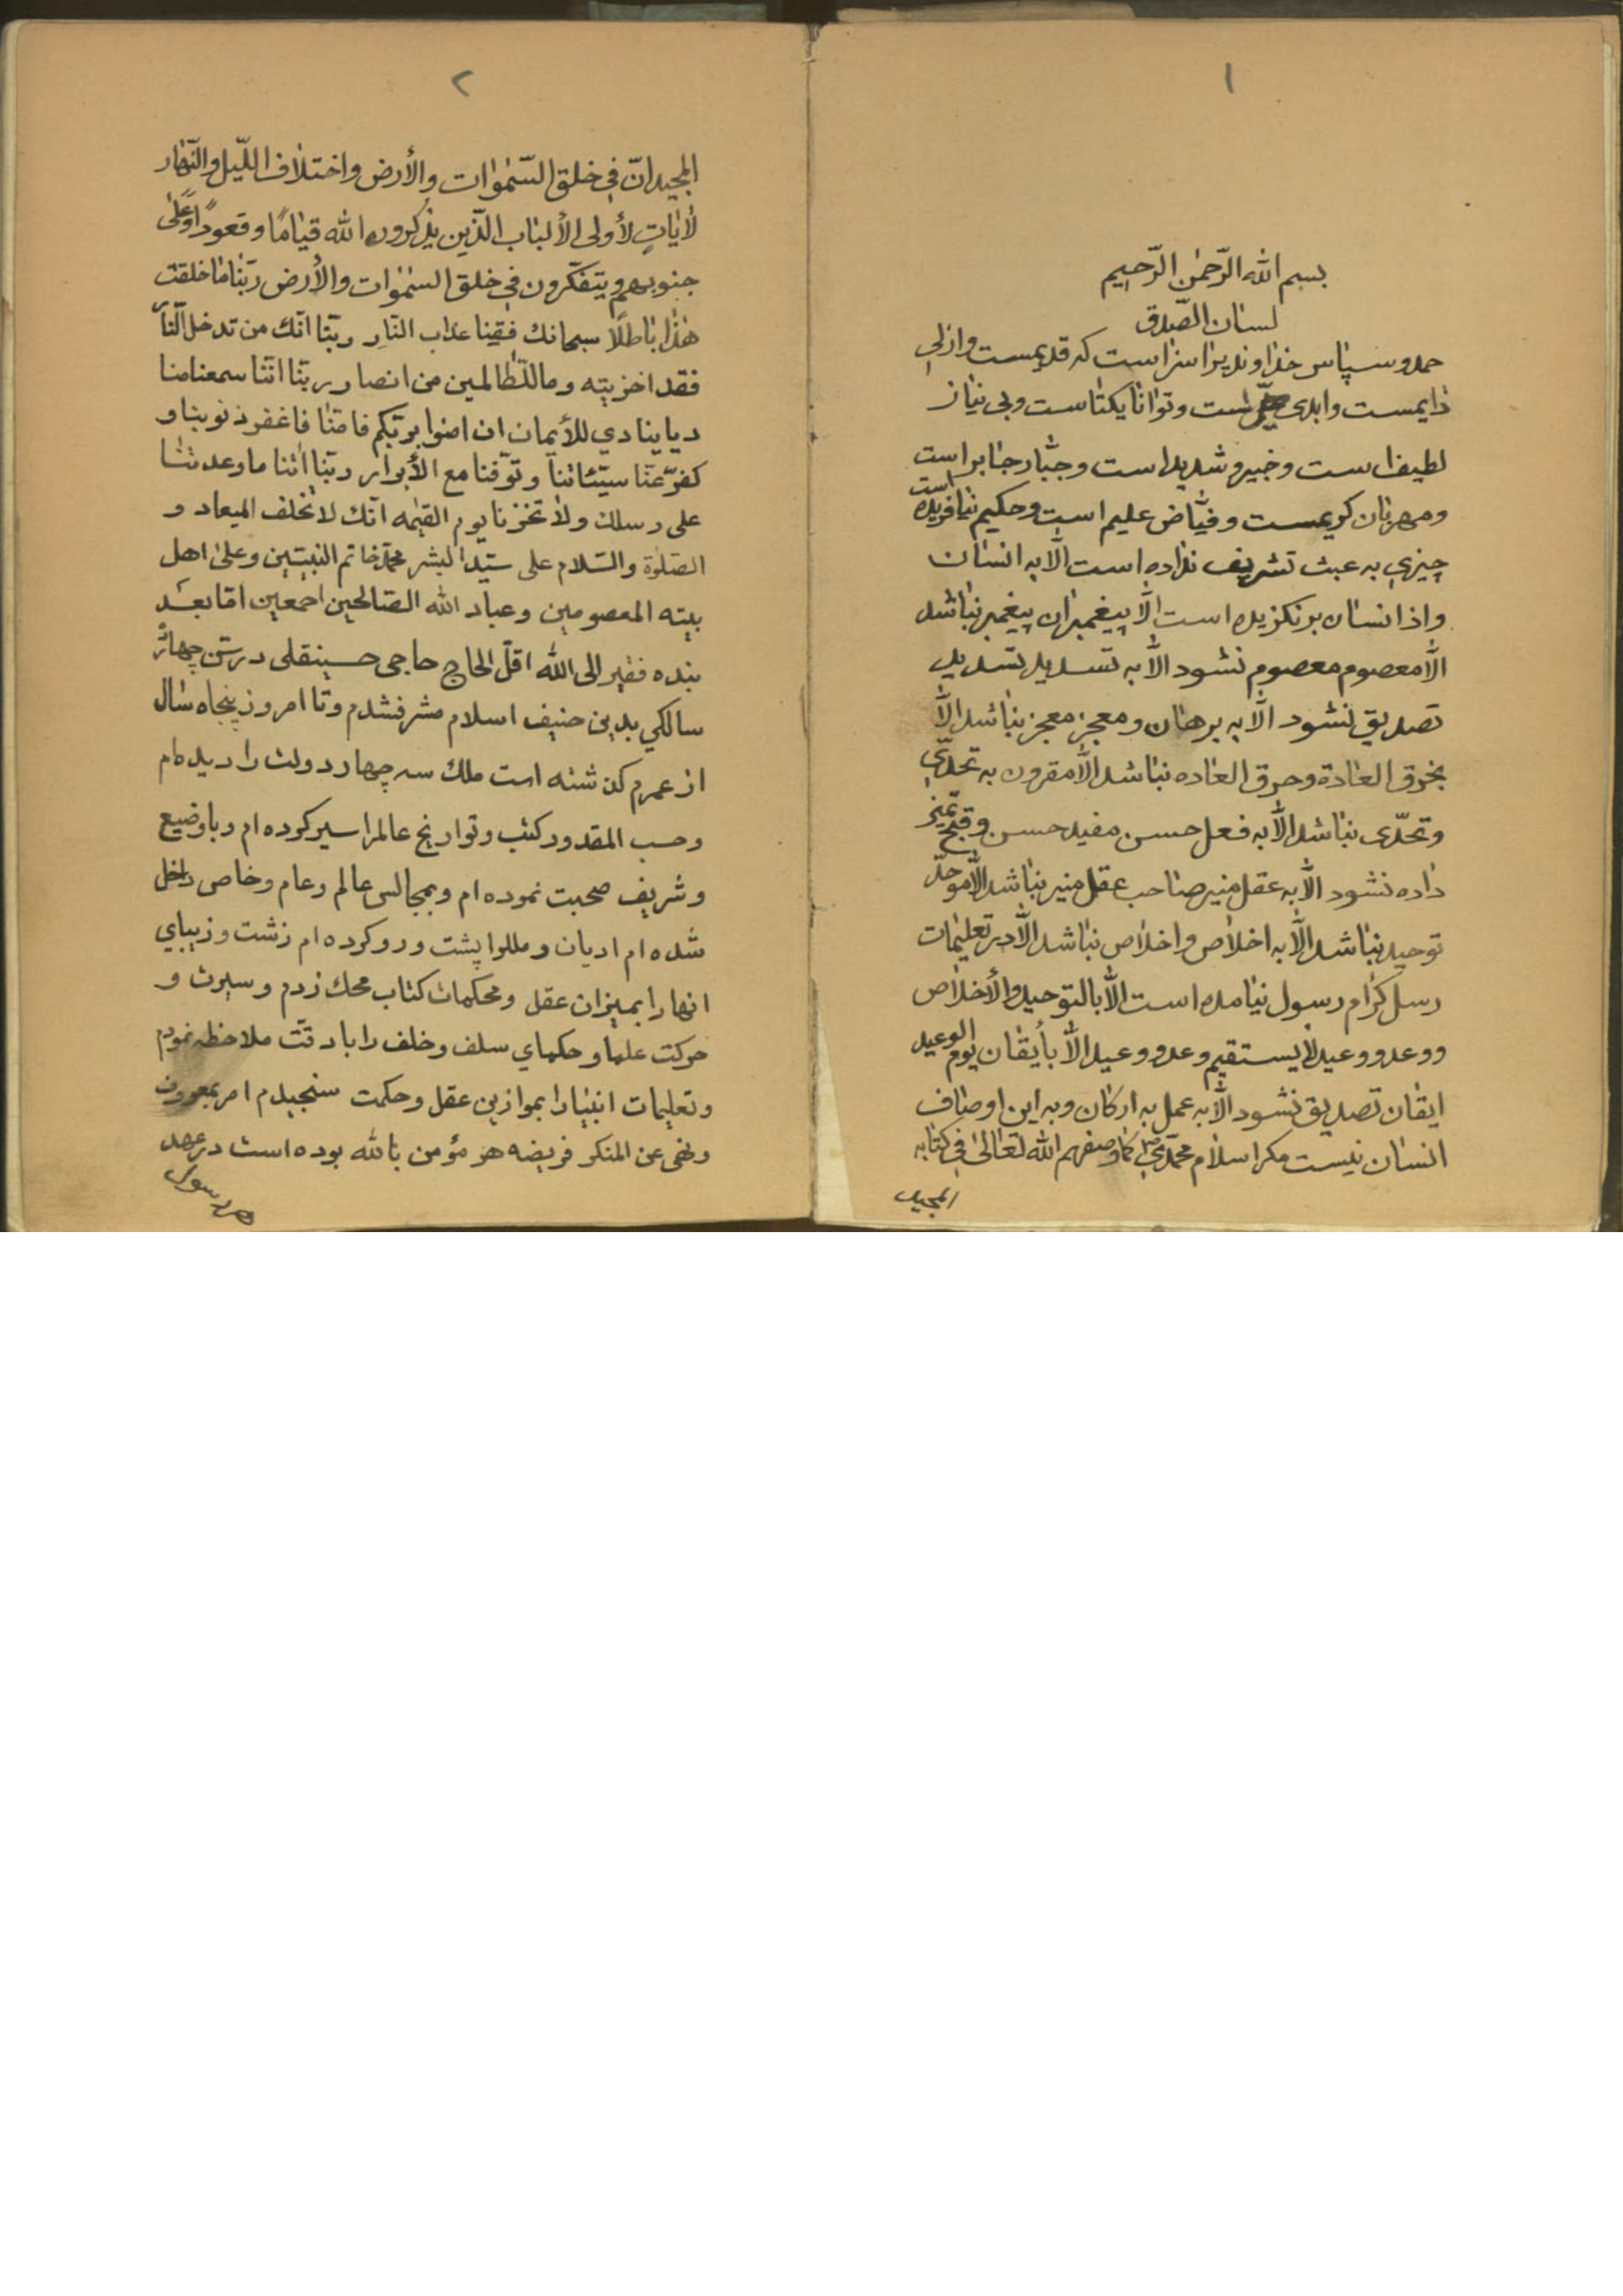 ١
بسم الله الرّحمٰن الرّحیم
لسان الصّدق
حمد و سپاس خداوندیرا سزاست که قدیمست وازلی
دایمست وابدی است وتوانا یکتاست وبی نیاز
لطیف است وخبیر وشدید است وجبّار جابر است
ومهربان کریمست وفیّاض علیم است وحکیم نیافریده است
چیزی به عبث تشریف نداده است الّا به انسان
واز انسان برنگزیده است الّا پیغمبران پیغمبر نباشد
الّا معصوم معصوم نشود الّا به تسدید تسدید
تصدیق نشود الّا به برهان ومعجز معجز نباشد الّا
بخرق العادة وخرق العاده نباشد الّا مقرون به تحدّی
وتحدّی نباشد الّا به فعل حسن مفید حسن وقبح تمیز
داده نشود الّا به عقل منیر صاحب عقل منیر نباشد الّا موحّد
توحید نباشد الّا به اخلاص واخلاص نباشد الّا در تعلیمات
رسل کرام رسول نیامده است الّا بالتوحید والأخلاص
ووعد ووعید لا یستقیم وعد ووعید الّا بأیقان یوم الوعید
ایقان تصدیق نشود الّا به عمل به ارکان وبه این اوصاف
انسان نیست مکر اسلام محمّدی ص کما وصفهم الله تعالیٰ فی کتابه
المجید
٢
المجید انّ فی خلق السّمٰوات والأرض واختلاف اللّیل والنّهار
لأیاتٍ لأولی الألباب الّذین یذکرون الله قیامًا وقعودًا وعلیٰ
جنوبهم ویتفکّرون فی خلق السّمٰوات والأرض ربّنا ما خلقت
هٰذا باطلًا سبحانك فقینا عذاب النّارِ ربّنا انّك من تدخل النّار
فقد اخزیته وما للظّالمین من انصار ربّنا انّنا سمعنا منا
دیا ینادی للأیمان ان امنوا بربّکم فامنّا فاغفر ذنوبنا و
کفرّ عنّا سیّئاتنا وتوّفنا مع الأبرار ربّنا اٰتنا ما وعدتنا
علی رسلك ولا تخزنا یوم القیٰمه انّك لا تخلف المیعاد و
الصّلوٰة والسّلام علی سیّد البشر محمّد خاتم النبیّین وعلیٰ اهل
بیته المعصومین وعباد الله الصّالحین اجمعین امّا بعد
بنده فقیر الی الله اقلّ الحاج حاجی حسینقلی در سّن چهارْ
سالکی بدین حنیف اسلام مشرفشدم وتا امروز پنجاه سال
از عمرم کذشته است ملك سه چهار دولت را دیده ام
وحسب المقدور کتب وتواریخ عالمرا سیر کرده ام وبا وضیع
وشریف صحبت نموده ام وبمجالس عالم وعام وخاص داخل
شده ام ادیان ومللرا پشت ورو کرده ام زشت وزیبای
انها را بمیزان عقل ومحکمات کتاب محك زدم وسیرت و
حرکت علما وحکمای سلف وخلف را با دقّت ملاحظه نمودم
وتعلیمات انبیا را بموازین عقل وحکمت سنجیدم امر بمعروف
ونهی عن المنکر فریضه هر مؤمن بالله بوده است در عهد
هر رسول